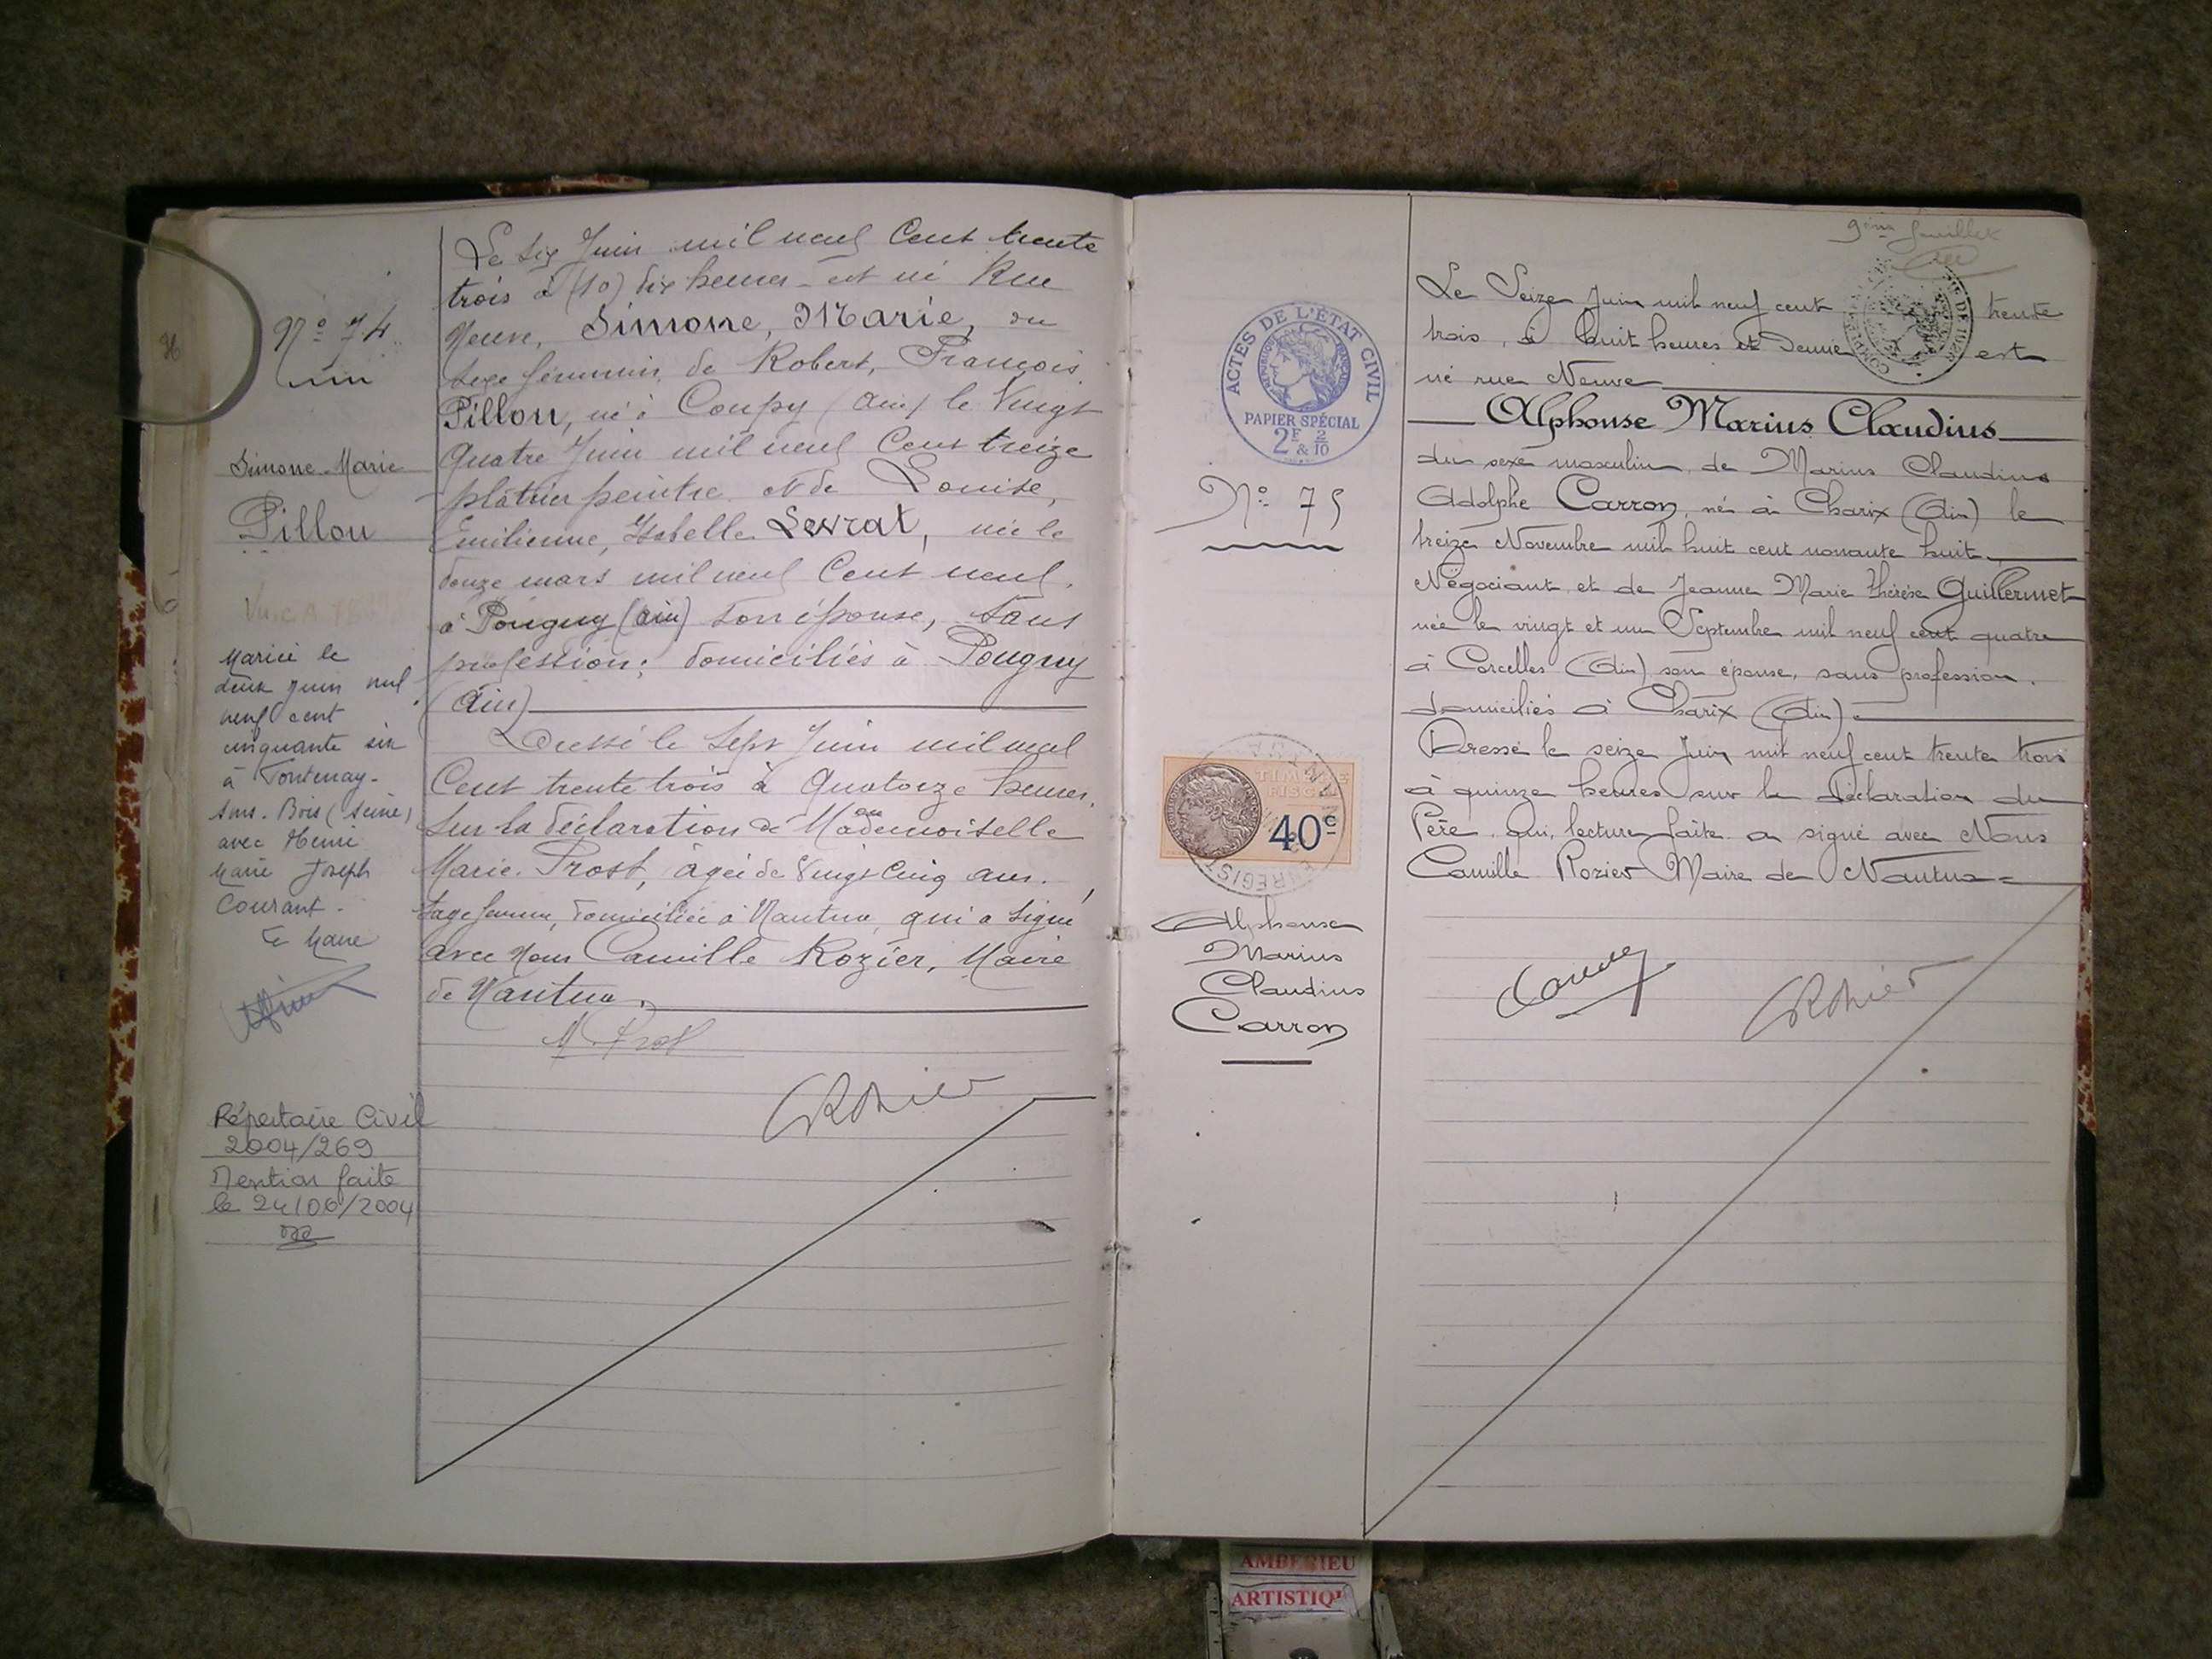 N° 74
Simone-Marie
Pillou
Mariée le
deux juin mil
neuf cent
cinquante six
à Fontenay-
sous-Bois (Seine)
avec Henri
Marie Joseph
Courant.
Le Maire
Répertoire Civil
2004/269
Mention faite
le 24/06/2004
Le six Juin mil neuf Cent trente
trois à (10) dix heures - est né Rue
Neuve, Simone, Marie, du
sexe féminin, de Robert, François
Pillou, né à Coupy (Ain) le Vingt
Quatre Juin mil neuf Cent treize
plâtrier peintre et de Louise,
Emilienne, Isabelle Levrat, née le
douze mars mil neuf Cent neuf,
à Pougny (Ain) son épouse, sans
profession; domiciliés à Pougny
(Ain)
Dressé le Sept Juin mil neuf
Cent trente trois à Quatorze heures,
sur la déclaration de Mademoiselle
Marie Prost, âgée de Vingt Cinq ans.
sage femme, domiciliée à Nantua, qui a signé
avec Nous Camille Rozier, Maire
de Nantua.
M. Prost
CRozier
ACTES DE L'ÉTAT CIVIL
RÉPUBLIQUE FRANÇAISE
PAPIER SPÉCIAL
2F & 2/10
N° 75
TIMBRE
FISCAL
40c
Alphonse
Marius
Claudius
Carron
9ème feuillet
Le Seize Juin mil neuf cent trente
trois, à huit heures et Demie est
né rue Neuve
Alphonse Marius Claudius
du sexe masculin, de Marius Claudius
Adolphe Carron, né à Charix (Ain) le
treize Novembre mil huit cent nonante huit
Négociant et de Jeanne Marie Thérèse Guillermet
née le vingt et un Septembre mil neuf cent quatre
à Corcelles (Ain) son épouse, sans profession.
domiciliés à Charix (Ain).
Dressé le seize Juin mil neuf cent trente trois
à quinze heures sur la déclaration du
Père qui, lecture faite a signé avec Nous
Camille Rozier Maire de Nantua
Carron
CRozier
AMBERIEU
ARTISTIQU